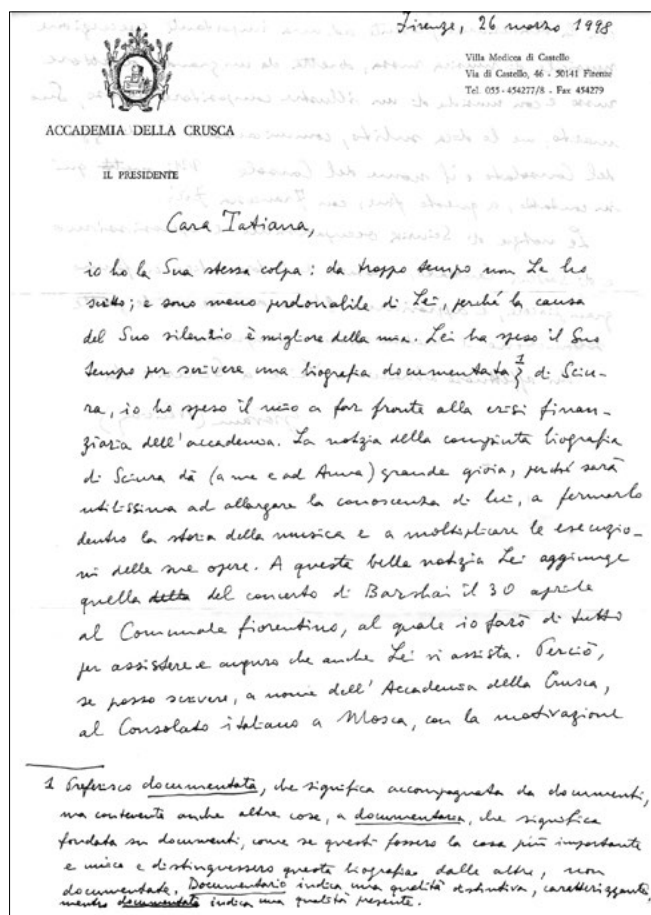 Firenze, 26 marzo 1998
Villa Medicea di Castello
Via di Castello, 46 - 50141 Firenze
Tel. 055-454277/8 - Fax 454279
ACCADEMIA DELLA CRUSCA
IL PRESIDENTE
Cara Tatiana,
io ho la Sua stessa colpa: da troppo tempo non Le ho
scritto; e sono meno perdonabile di Lei, perché la causa
del Suo silenzio è migliore della mia. Lei ha speso il Suo
tempo per scrivere una biografia documentata 1 di Sciu-
ra, io ho speso il mio a far fronte alla crisi finan-
ziaria dell'accademia. La notizia della compiuta biografia
di Sciura dà (a me e ad Anna) grande gioia, perché sarà
utilissima ad allargare la conoscenza di lui, a fermarlo
dentro la storia della musica e a moltiplicare le esecuzio-
ni delle sue opere. A questa bella notizia Lei aggiunge
quella della del concerto di Barshai il 30 aprile
al Comunale fiorentino, al quale io farò di tutto
per assistere e auguro che anche Lei vi assista. Perciò,
se posso scrivere, a nome dell'Accademia della Crusca,
al Consolato italiano a Mosca, con la motivazione
1 Preferisco documentata, che significa accompagnata da documenti,
ma contenente anche altre cose, a documentaria, che significa
fondata su documenti, come se questi fossero la cosa più importante
e unica e distinguessero questa biografia dalle altre, non
documentate. Documentario indica una qualità distintiva, caratterizzante,
mentre documentata indica una qualità presente.